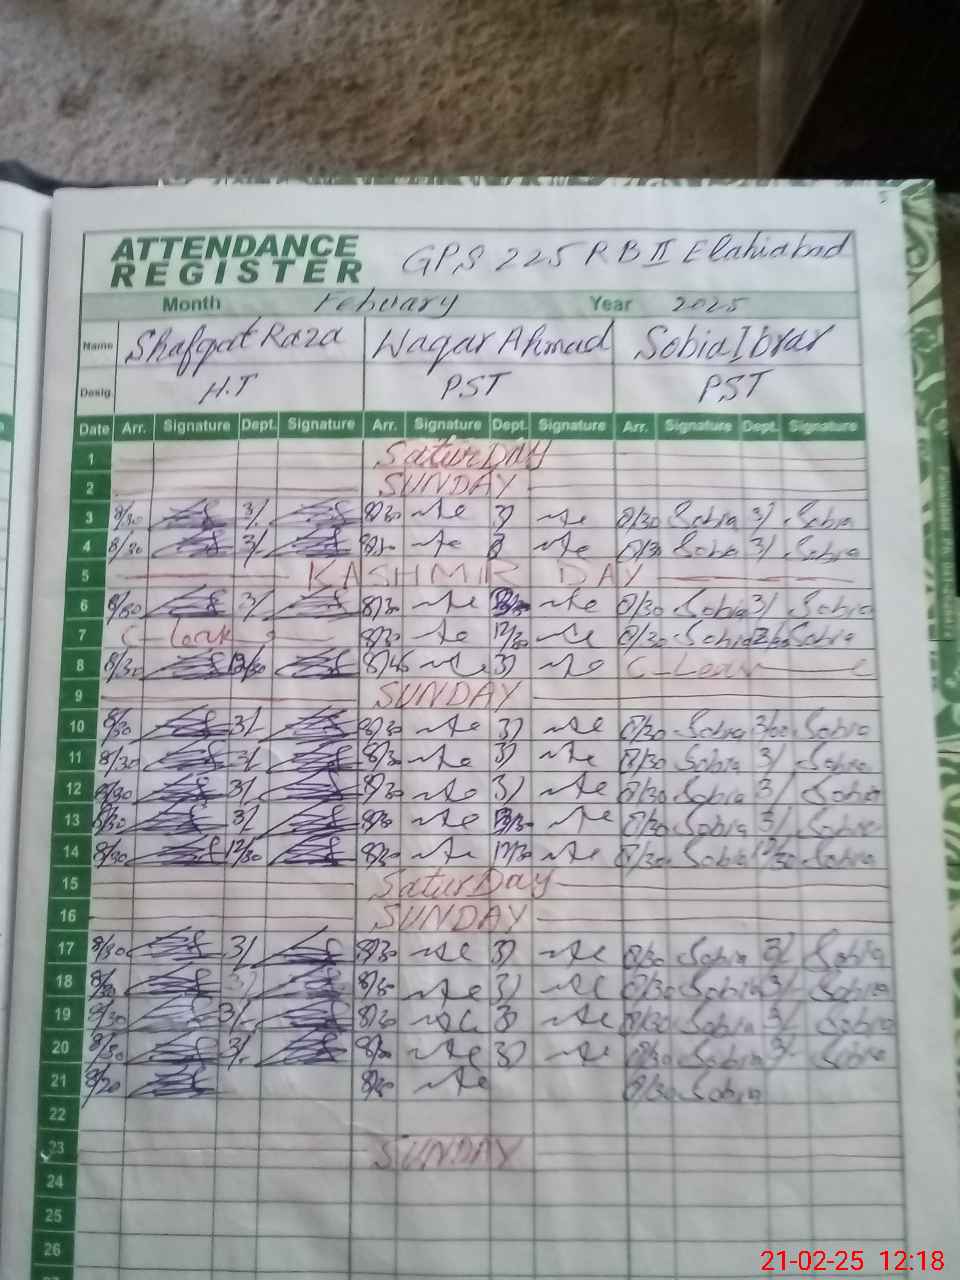 ATTENDANCE REGISTER GPS 225 RB II Elahiabad
Month Febuary Year 2025
Name Shafqat Raza Waqar Ahmad Sobia Ibrar
Desig. H.T PST PST
Date Arr. Signature Dept. Signature Arr. Signature Dept. Signature Arr. Signature Dept. Signature
1 SaturDAY
2 SUNDAY
3 8/30 3/ 8/30 3/ 8/30 Sobia 3/ Sobia
4 8/30 3/ 8/30 8/30 Sobia 3/ Sobia
5 KASHMIR DAY
6 8/30 3/ 8/30 8/30 Sobia 3/ Sobia
7 C-leak 8/30 12/30 8/30 Sobia Sobia
8 8/30 12/30 8/45 3/ C-Leav
9 SUNDAY
10 8/30 3/ 8/30 3/ 8/30 Sobia 3/00 Sobia
11 8/30 3/ 8/30 3/ 8/30 Sobia 3/ Sobia
12 8/30 3/ 8/30 3/ 8/30 Sobia 3/ Sobia
13 8/30 3/ 8/30 8/30 Sobia 3/ Sobia
14 8/30 12/30 8/30 12/30 8/30 Sobia 12/30 Sobia
15 SaturDay
16 SUNDAY
17 8/30 3/ 8/30 3/ 8/30 Sobia 3/ Sobia
18 8/30 3/ 8/30 3/ 8/30 Sobia 3/ Sobia
19 8/30 3/ 8/30 3/ 8/30 Sobia 3/ Sobia
20 8/30 3/ 8/30 3/ 8/30 Sobia 3/ Sobia
21 8/30 8/30 8/30 Sobia
22
23 SUNDAY
24
25
26
21-02-25 12:18